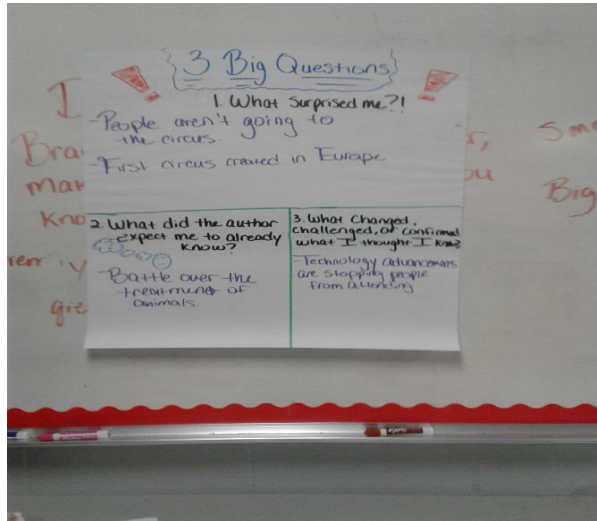 3 Big Questions
1. What surprised me?!
-People aren't going to
the circus.
-First circus created in Europe
2. What did the author
expect me to already
know?
-Battle over the
treatment of
animals
3. What changed,
challenged, or confirmed
what I thought I knew?
-Technology advancements
are stopping people
from attending
I
Big
EXPO